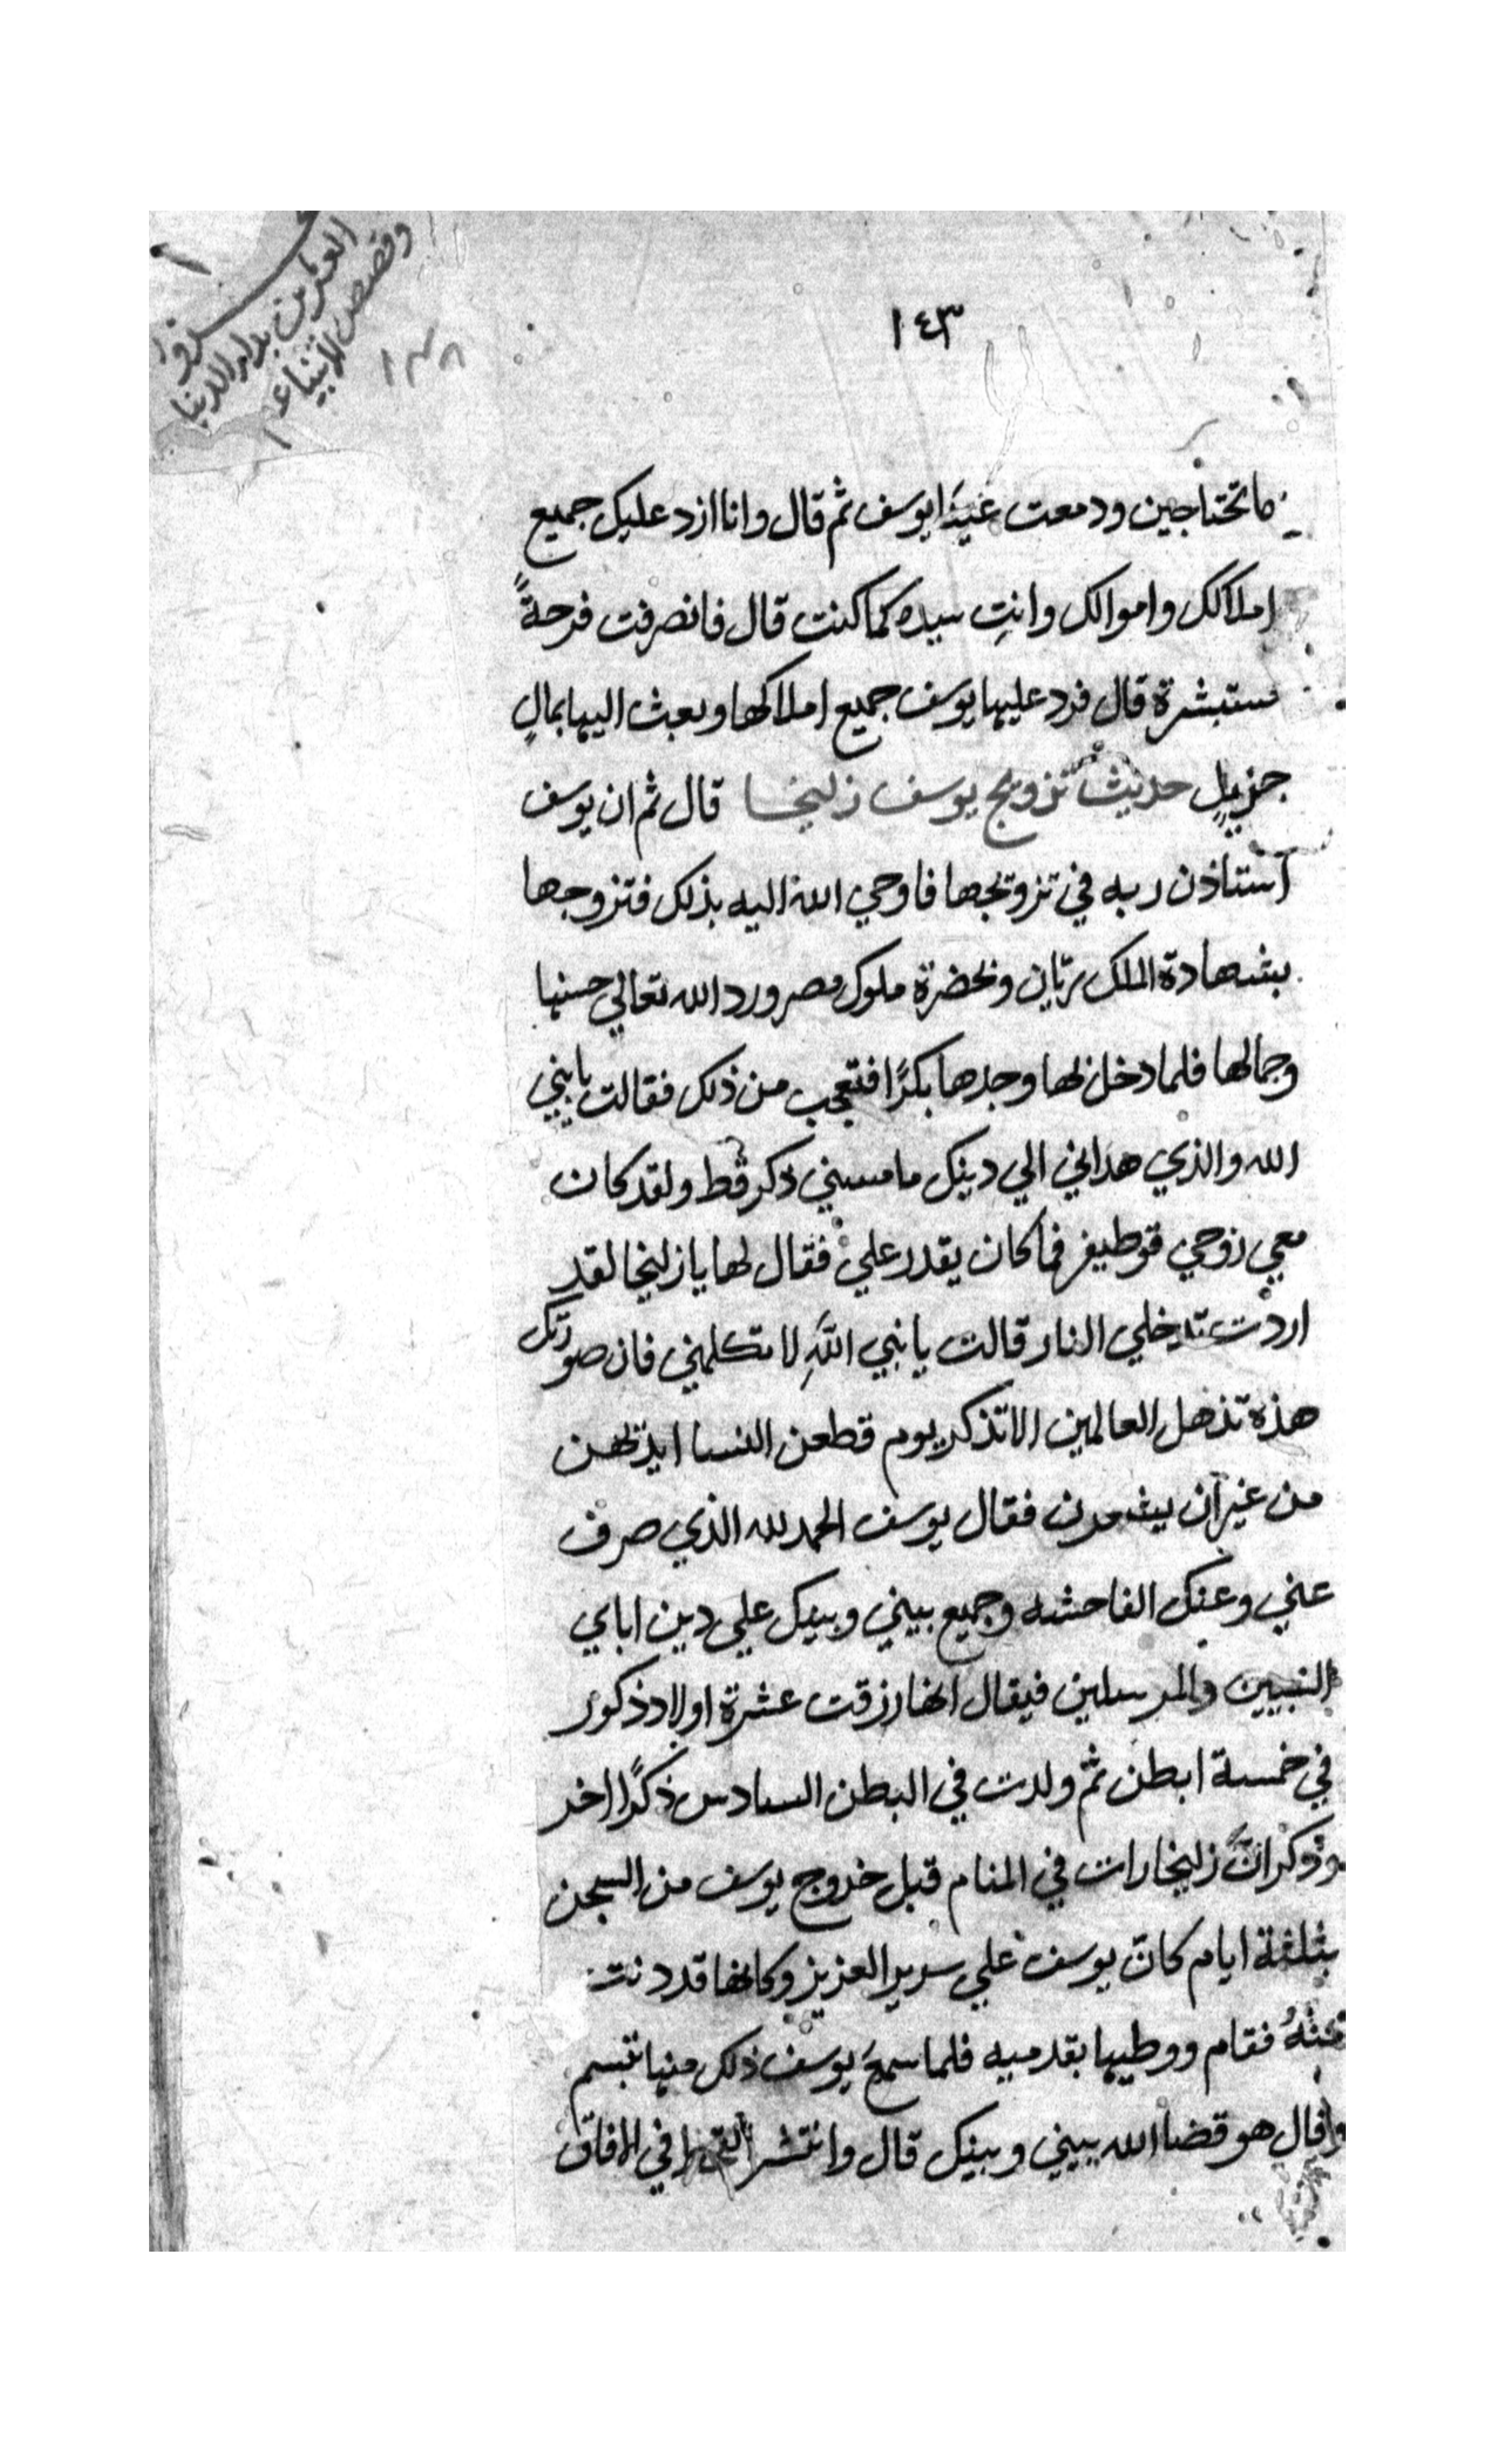 ١٤٣
١٣٨
العشر من بدايه الدنيا
وقصص الانبياء
ما تحتاجين ودمعت عينا يوسف ثم قال وانا ازد عليك جميع
املاكك واموالك وانتِ سيده كما كنت قال فانصرفت فرحةً
مستبشرة قال فرد عليها يوسف جميع املاكها وبعث اليها بمالٍ
جزيلٍ حديث تزويج يوسف زليخا قال ثم ان يوسف
استاذن ربه في تزويجها فاوحي الله اليه بذلك فتزوجها
بشهادة الملك ريّان وبحضرة ملوك مصر ورد الله تعالي حسنها
وجمالها فلما دخل بها وجدها بكرًا فتعجب من ذلك فقالت يا نبي
الله والذي هداني الي دينك ما مسني ذكر قط ولقد كان
معي زوجي قوطيفر فما كان يقدر علي فقال لها يا زليخا لقد
اردت تدخلي النار قالت يا نبي اللهِ لا تكلمني فان صورتك
هذه تذهل العالمين الا تذكر يوم قطعن النسا ايديهن
من غير ان يشعرن فقال يوسف الحمد لله الذي صرف
عني وعنك الفاحشه وجميع بيني وبينك علي دين اباي
النبيين والمرسلين فيقال انها رزقت عشرة اولاد ذكور
في خمسة ابطن ثم ولدت في البطن السادس ذكرًا اخر
وذكر انّ زليخا رات في المنام قبل خروج يوسف من السجن
بثلثة ايام كانّ يوسف علي سرير العزيز وكانها قد دنت
منهُ فقام ووطيها بقدميه فلما سمع يوسف ذلك منها تبسم
وقال هو قضا الله بيني وبينك قال وانتشر في الافاق